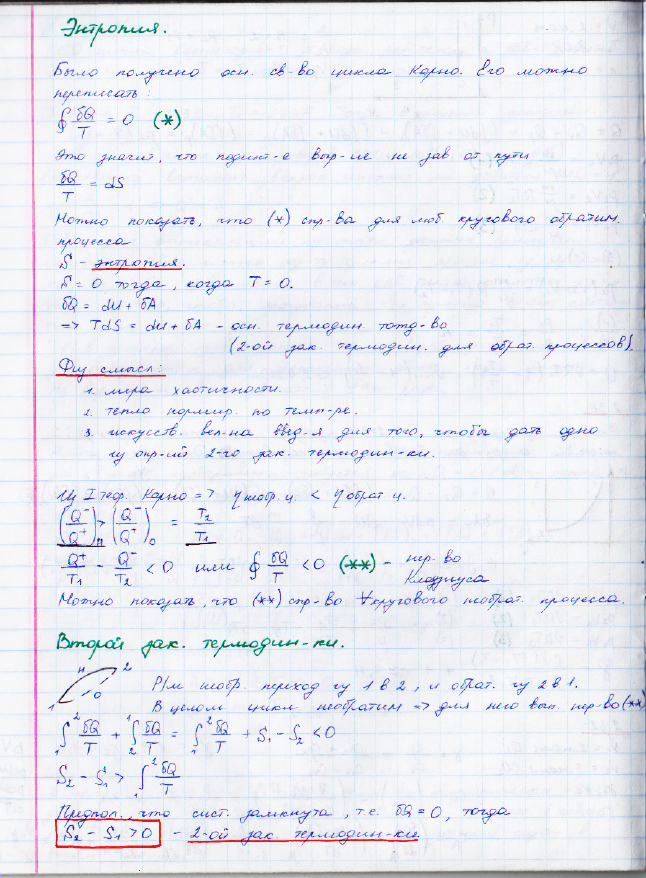 Энтропия.
Было получено осн. св-во цикла Карно. Его можно
переписать:
∮ δQ/T = 0 (*)
Это значит, что подинт-е выр-ие не зав от пути
δQ/T = dS
Можно показать, что (*) спр-ва для люб. кругового обратим.
процесса
S - энтропия.
S = 0 тогда, когда T = 0.
δQ = dU + δA
=> TdS = dU + δA - осн. термодин. тожд-во
(2-ой зак. термодин. для обрат. процессов).
Физ смысл:
1. мера хаотичности.
2. тепло нормир. по темп-ре.
3. искусств. вел-на введ-я для того, чтобы дать одно
из опр-ий 2-го зак. термодин-ки.
Из I теор. Карно => η необр. ц. < η обрат ц.
(Q⁻/Q⁺)н > (Q⁻/Q⁺)о = T₂/T₁
Q⁺/T₁ - Q⁻/T₂ < 0 или ∮ δQ/T < 0 (**) - нер-во
Клаузиуса
Можно показать, что (**) спр-во ∀ кругового необрат. процесса.
Второй зак. термодин-ки.
н 2
1 о
Р/м необр. переход из 1 в 2, и обрат. из 2 в 1.
В целом цикл необратим => для него вып. нер-во (**)
∫₁² δQ/T + ∫₂¹ δQ/T = ∫₁² δQ/T + S₁ - S₂ < 0
S₂ - S₁ > ∫₁² δQ/T
Предпол., что сист. замкнута, т.е. δQ = 0, тогда
S₂ - S₁ > 0 - 2-ой зак. термодин-ки.